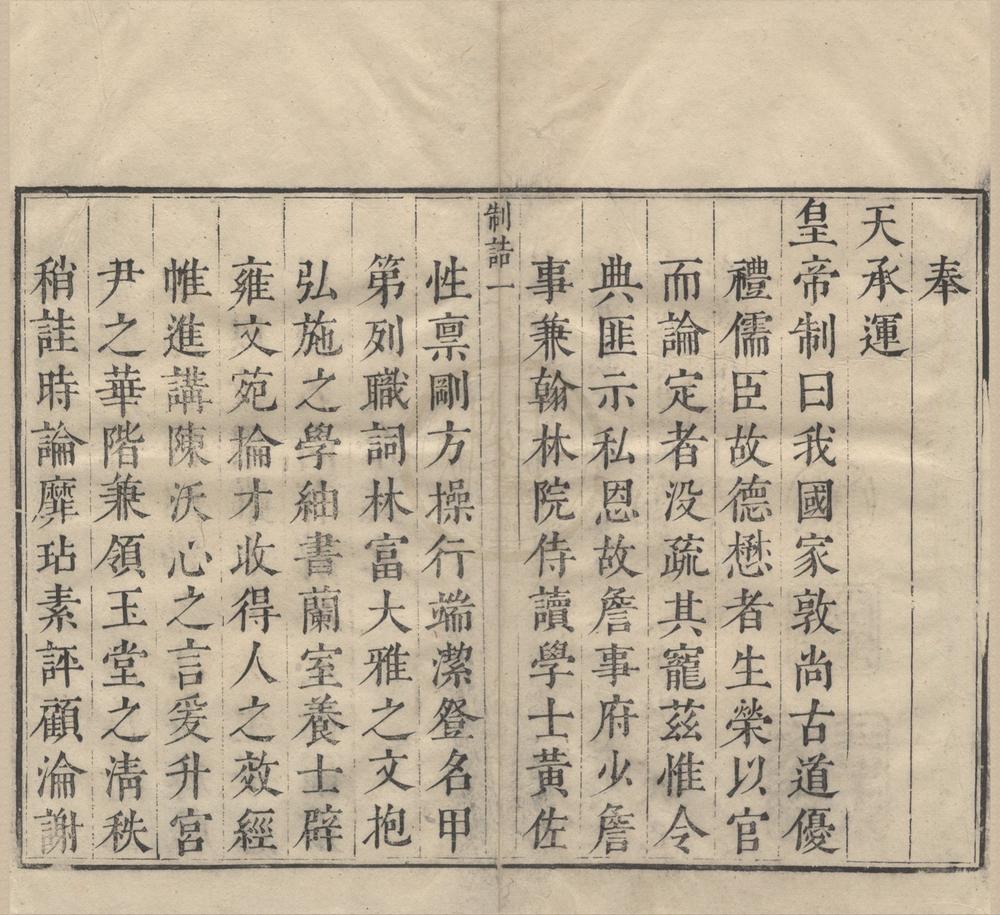 奉
天承運
皇帝制曰我國家敦尚古道優
禮儒臣故德懋者生榮以官
而論定者没疏其寵茲惟令
典匪示私恩故詹事府少詹
事兼翰林院侍讀學士黃佐
制誥一
性禀剛方操行端潔登名甲
第列職詞林富大雅之文抱
弘施之學紬書蘭室養士辟
雍文苑掄才收得人之效經
帷進講陳沃心之言爰升宮
尹之華階兼領玉堂之清秩
稍詿時論靡玷素評顧淪謝